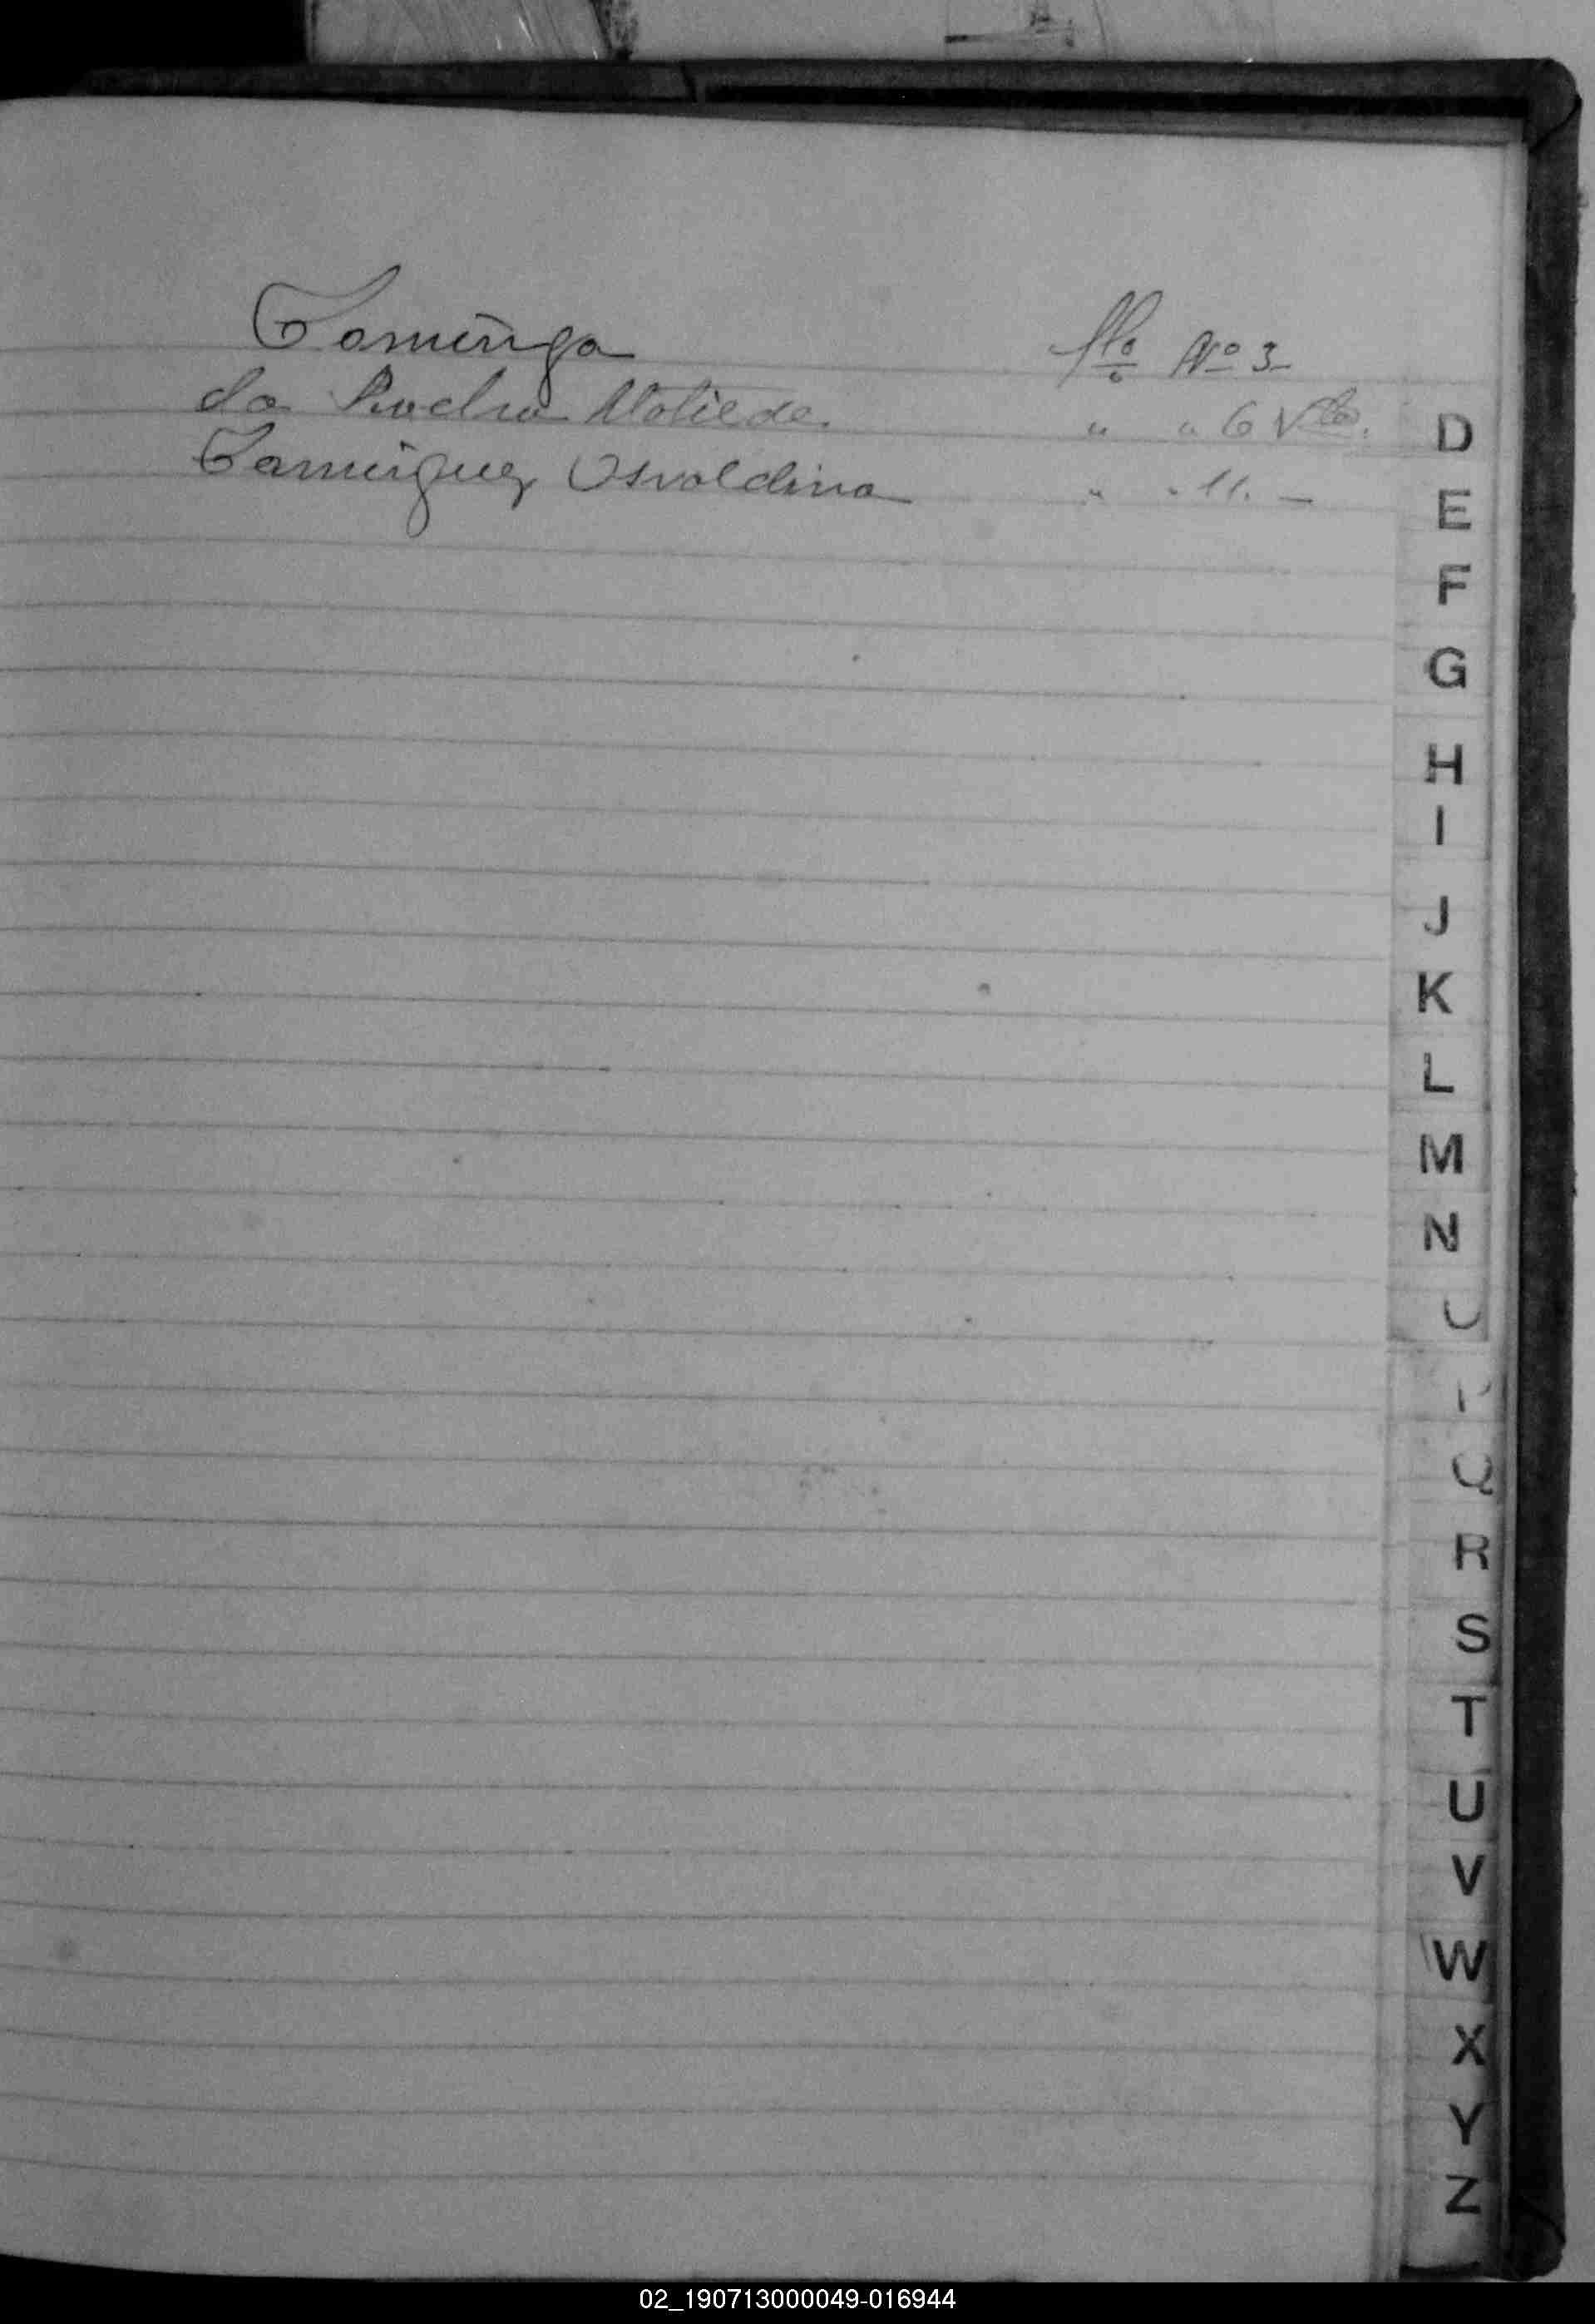 Dominga fllo Nº 3
da Rocha Matilde. " " 6 Vto.
Dominguez Osvaldina " " 11. —
D
E
F
G
H
I
J
K
L
M
N
Q
R
S
T
U
V
W
X
Y
Z
02_190713000049-016944